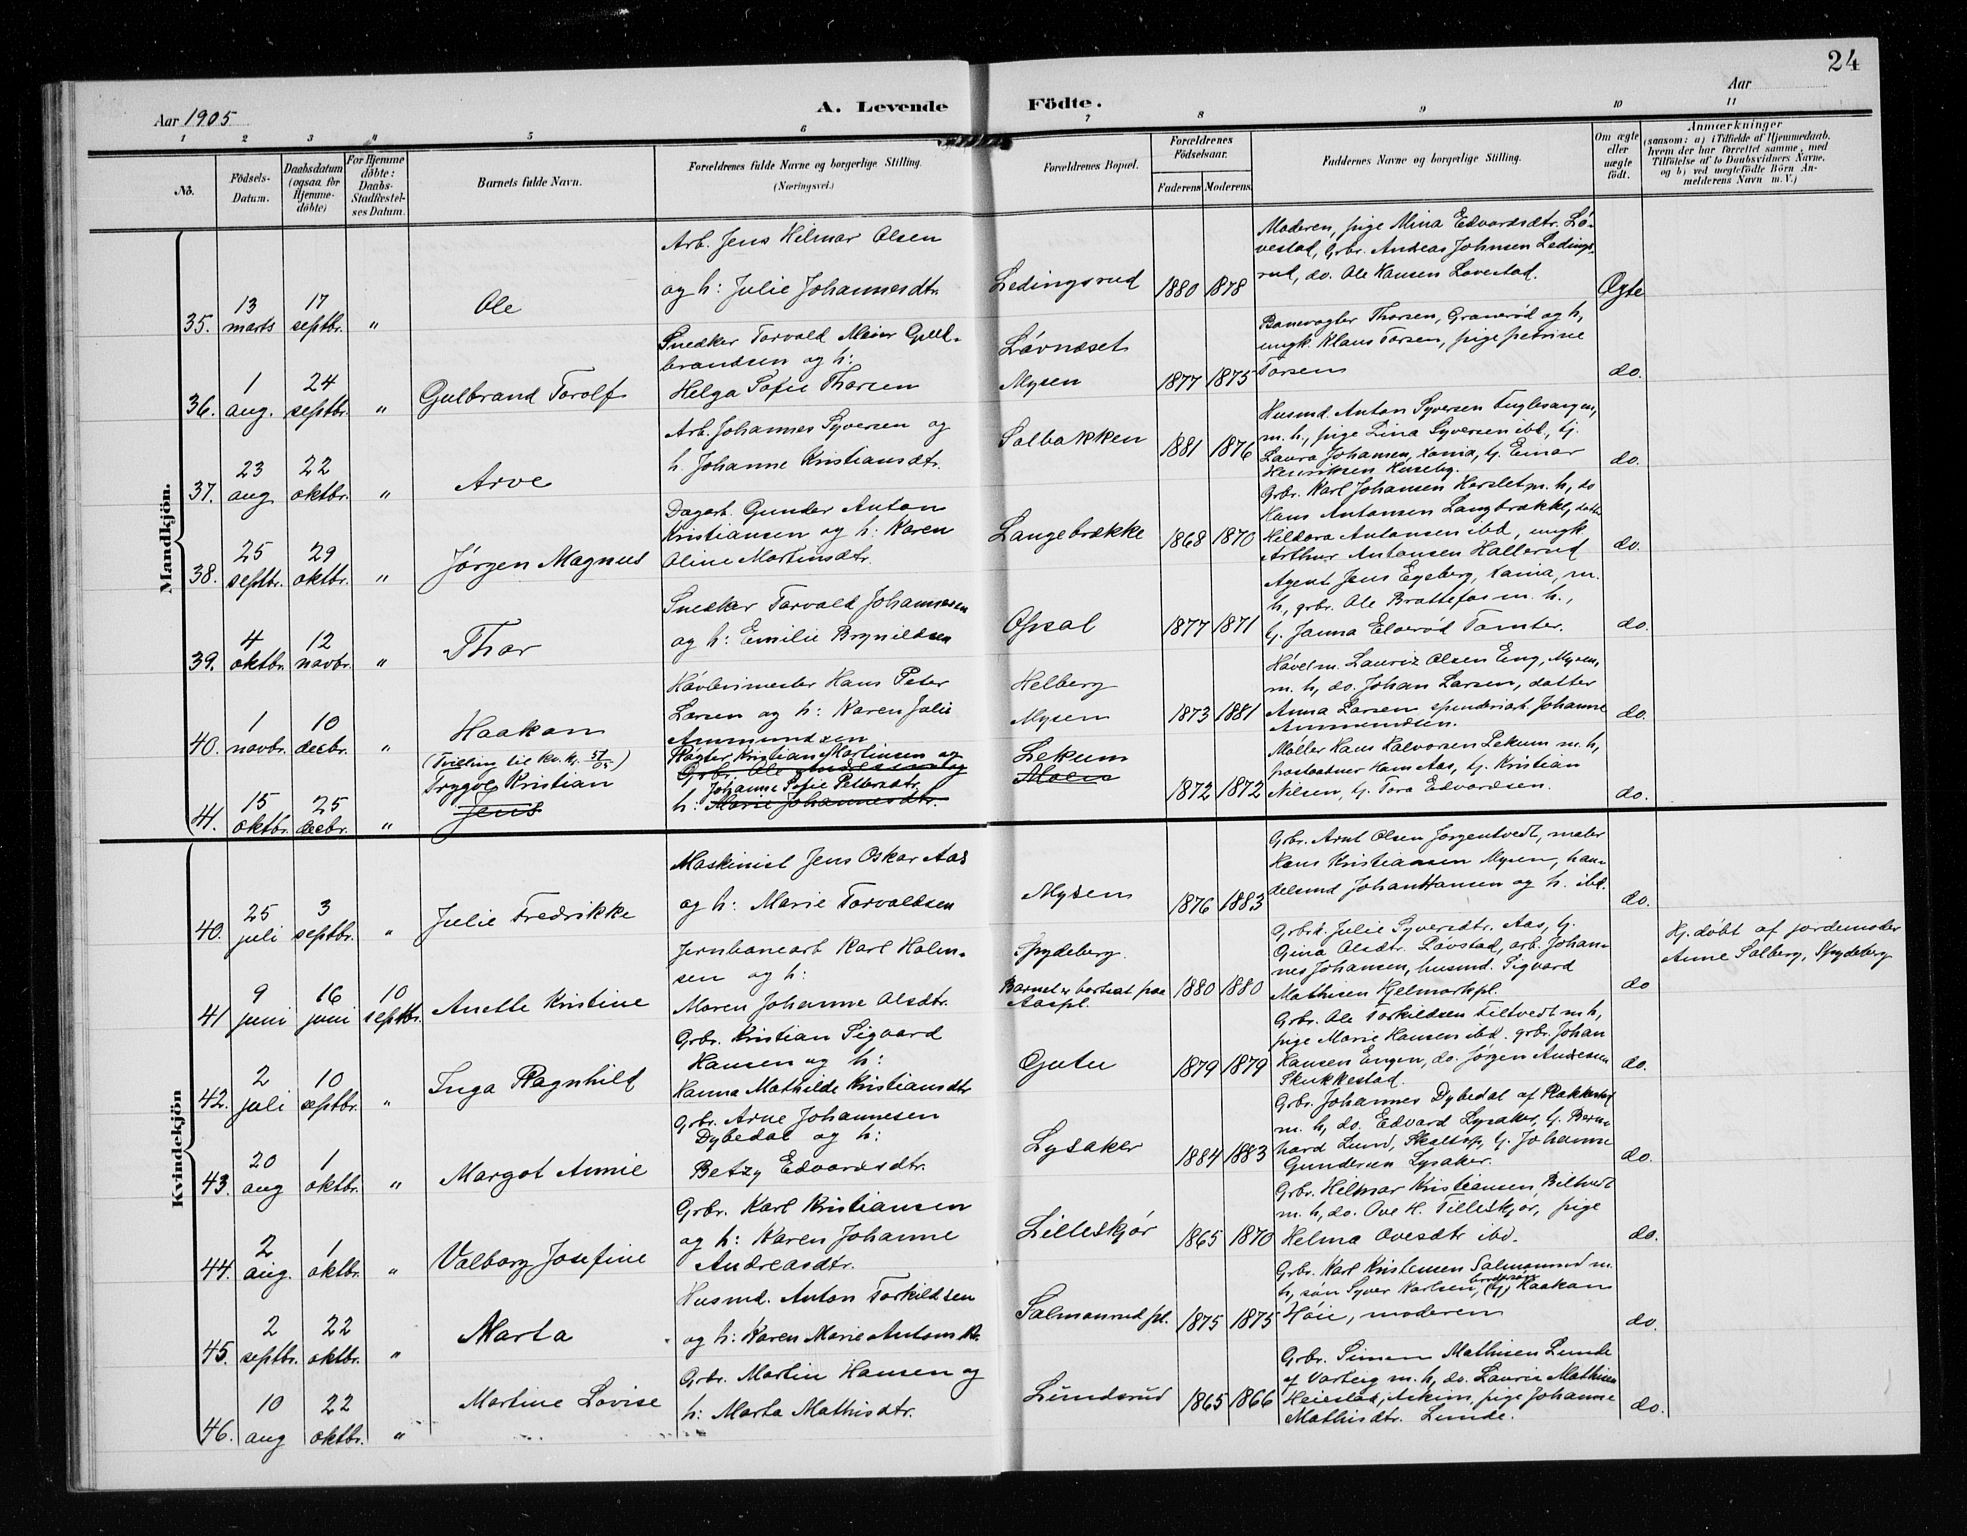 24
Aar 1905
A. Levende Födte.
Aar
1 2 3 4 5 6 7 8 9 10 11
No.
Födsels-Datum.
Daabsdatum (ogsaa for Hjemme-döbte)
For Hjemme döbte: Daabs-Stadfæstel-ses Datum.
Barnets fulde Navn.
Forældrenes fulde Navne og borgerlige Stilling. (Næringsvei.)
Forældrenes Bopæl.
Forældrenes Födselsaar.
Faderens. Moderens.
Faddernes Navne og borgerlige Stilling.
Om ægte eller uægte födt.
Anmærkninger
(saasom: a) i Tilfælde af Hjemmedaab, hvem der har forrettet samme, med Tilföielse af to Daabsvidners Navne, og b) ved uægtefödte Börn An-melderens Navn m. V.)
Mandkjön.
35. 13 marts 17 septbr. " Ole
Arb. Jens Helmar Olsen
og h: Julie Johannesdtr.
Ledingsrud 1880 1878
Moderen, pige Mina Edvardsdtr. Lö-
vestad, Grbr. Andreas Johnsen Ledings-
rud, do. Ole Hansen Lovestad.
Ægte
36. 1 aug. 24 septbr. " Gulbrand Torolf
Snedker Torvald Meier Gul-
brandsen og h:
Helga Sofie Thorsen
Lövnæset
Mysen 1877 1875
Banevogter Thorsen, Granerød og h,
ungk. Klaus Torsen, pige petrine
Torsen
do.
37. 23 aug 22 oktbr. " Arve
Arb. Johannes Syversen og
h. Johanne Kristiansdtr.
Solbakken 1881 1876
Husmd. Anton Syversen Fuglesangen,
m. h, pige Lina Syversen ibd, tj.
Laura Johansen, Xania, tj. Einar
Henriksen Huseby.
do.
38. 25 septbr. 29 oktbr. " Jørgen Magnus
Dagarb. Gunder Anton
Kristiansen og h: Karen
Oline Martinsdtr.
Langebrække 1868 1870
Grbr. Karl Johansen Herslet m. h, do
Hans Antonsen Langbrække, datter
Hildora Antonsen ibd, ungk.
Arthur Antonsen Hallerud
do.
39. 4 oktbr. 12 novbr. " Thor
Snedker Torvald Johannesen
og h: Emilie Brynildsen
Opsal 1877 1871
Agent Jens Egeberg, Xania, m.
h, grbr. Ole Brattefos m. h.,
tj. Janna Elverød Tomter.
do.
40. 1 novbr. 10 decbr. " Haakon
Hövlerimester Hans Peter
Larsen og h: Karen Julie
Ammundsen
Helberg
Mysen 1873 1881
Hövelm. Lauriz Olsen Eng, Mysen,
m. h, do. Johan Larsen, datter
Anna Larsen, Johanne
Ammundsen.
do.
41. 15 oktbr. 25 decbr. "
(Tvilling til kv. kj. 57/05)
Trygve Kristian
Jens
Pagter Kristian Martinsen og
Grbr. Ole Andreassen og
Johanne Sofie Pettersdtr.
h: Marie Johannesdtr.
Lekum
Moen
1872 1872
Möller Hans Halvorsen Lekum m. h,
postaabner Hans Aas, tj. Kristian
Nilsen, tj. Tora Edvardsen.
do.
Kvindekjön
40. 25 juli 3 septbr. " Julie Fredrikke
Maskinist Jens Oskar Aas
og h: Marie Torvaldsen
Mysen 1876 1883
Grbr. Arnt Olsen Jorgentvedt, maler
Hans Kristiansen Mysen, han-
delsmd Johan Hansen og h. ibd.
do.
41 9 juni 16 juni 10 septbr. Anette Kristine
Jernbanearb Karl Holm-
sen og h:
Maren Johanne Olsdtr.
Spydeberg.
Barnet er bortsat paa
Aaspl.
1880 1880
Grbrk. Julie Syversdtr. Aas, tj.
Gina Olsdtr. Lövstad, arb. Johan-
nes Johansen, husmd. Sigvard
Mathisen Hjelmarkpl.
do
Hj. döbt af jordemoder
Anne Solberg, Spydeberg
42. 2 juli 10 septbr. " Inga Ragnhild
Grbr. Kristian Sigvard
Hansen og h:
Hanna Mathilde Kristiansdtr
Gutu 1879 1879
Grbr. Ole Torkildsen Tiltvedt m. h,
pige Marie Hansen ibd. grbr. Johan
Hansen Engen, do. Jørgen Andresen
Skukkestad.
do.
43. 20 aug 1 oktbr. " Margot Annie
Grbr. Arne Johannesen
Dybedal og h:
Betzy Edvardsdtr.
Lysaker 1884 1883
Grbr. Johannes Dybedal af Rakkestad
m. h, do. Edvard Lysaker, tj. Bern-
hard Lund, tj. Johanne
Gundersen Lysaker.
do.
44. 2 aug. 1 oktbr. " Valborg Josefine
Grbr. Karl Kristiansen
og h: Karen Johanne
Andreasdtr.
Lilleskjör 1865 1870
Grbr. Hilmar Kristiansen, Biltvedt
m. h, do. Ove H. Tilleskjör, pige
Helma Ovesdtr ibd.
do.
45. 2 septbr. 22 oktbr. " Marta
Husmd. Anton Torkildsen
og h: Karen Marie Antonsdtr.
Salmonrud pl. 1875 1875
Grbr. Karl Kristensen Salmonrud m.
h, søn Syver Karlsen, tj. Haakon
Höie, moderen
do.
46. 10 aug 22 oktbr. " Martine Lovise
Grbr. Martin Hansen og
h: Marta Mathisdtr.
Lundsrud 1865 1866
Grbr. Simon Mathisen Lunde
af Varteig m. h, do. Laurits Mathisen
Heiestad, Askim, pige Johanne
Mathisdtr. Lunde.
do.